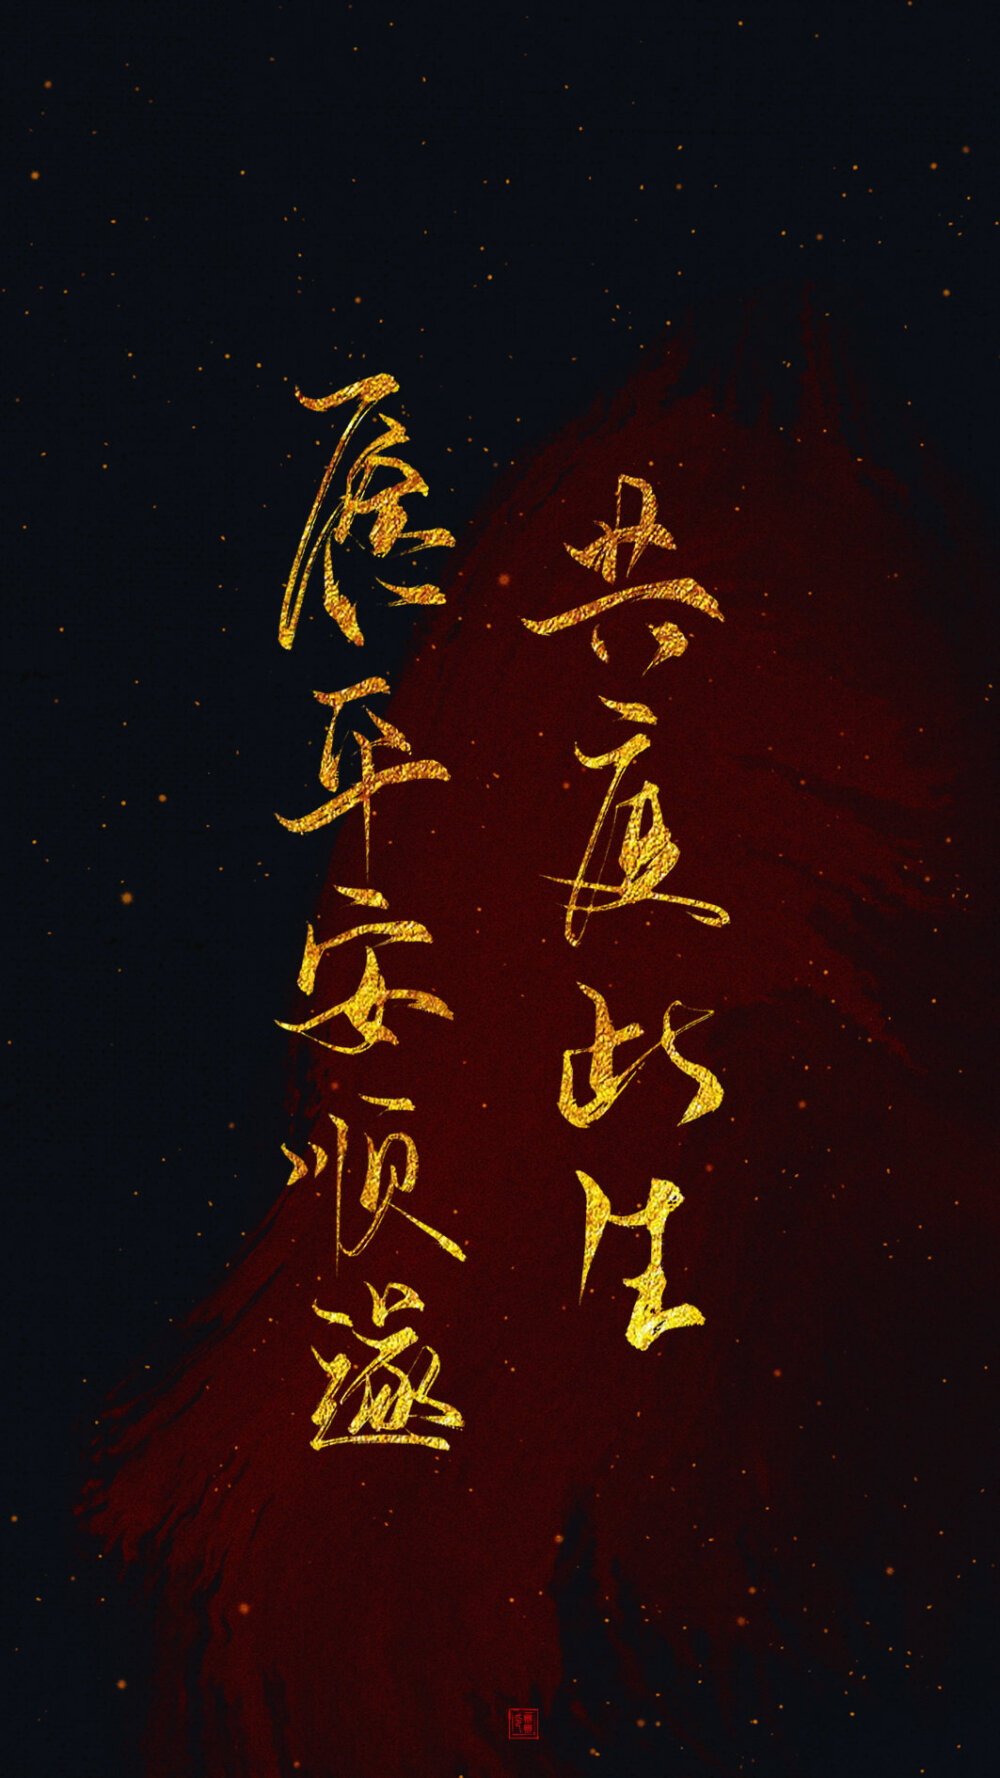 共度此生
愿平安顺遂